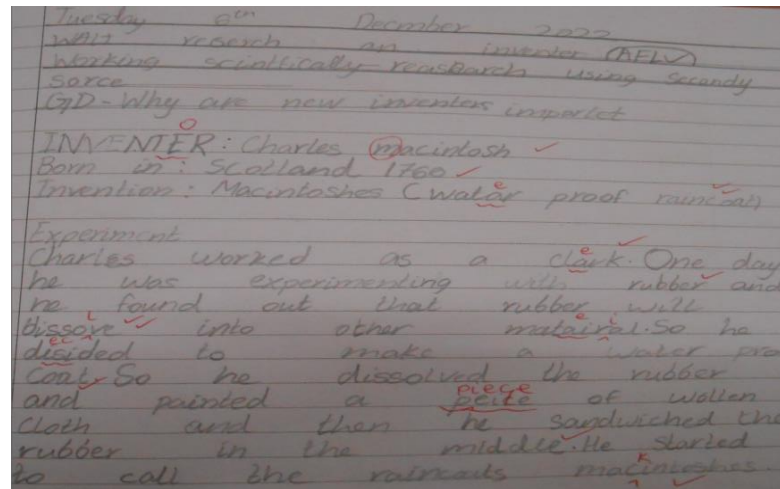 Tuesday 6th Decmber 2022
WALT reserch an inventer (AFLV)
Working scintifically-reasearch using secondy
sorce
GD-Why are new inventers imporlet
INVENTER: Charles macintosh
Born in: Scotland 1760
Invention: Macintoshes (watar proof raincoat)
Experiment
Charles worked as a clark. One day
he was experimenting with rubber and
he found out that rubber will
dissove into other matairal. So he
desided to make a water pro
coat. So he dissolved the rubber
piece
and painted a peite of wollen
cloth and then he sandwiched the
rubber in the middle. He started
to call the raincoats macintoshes.